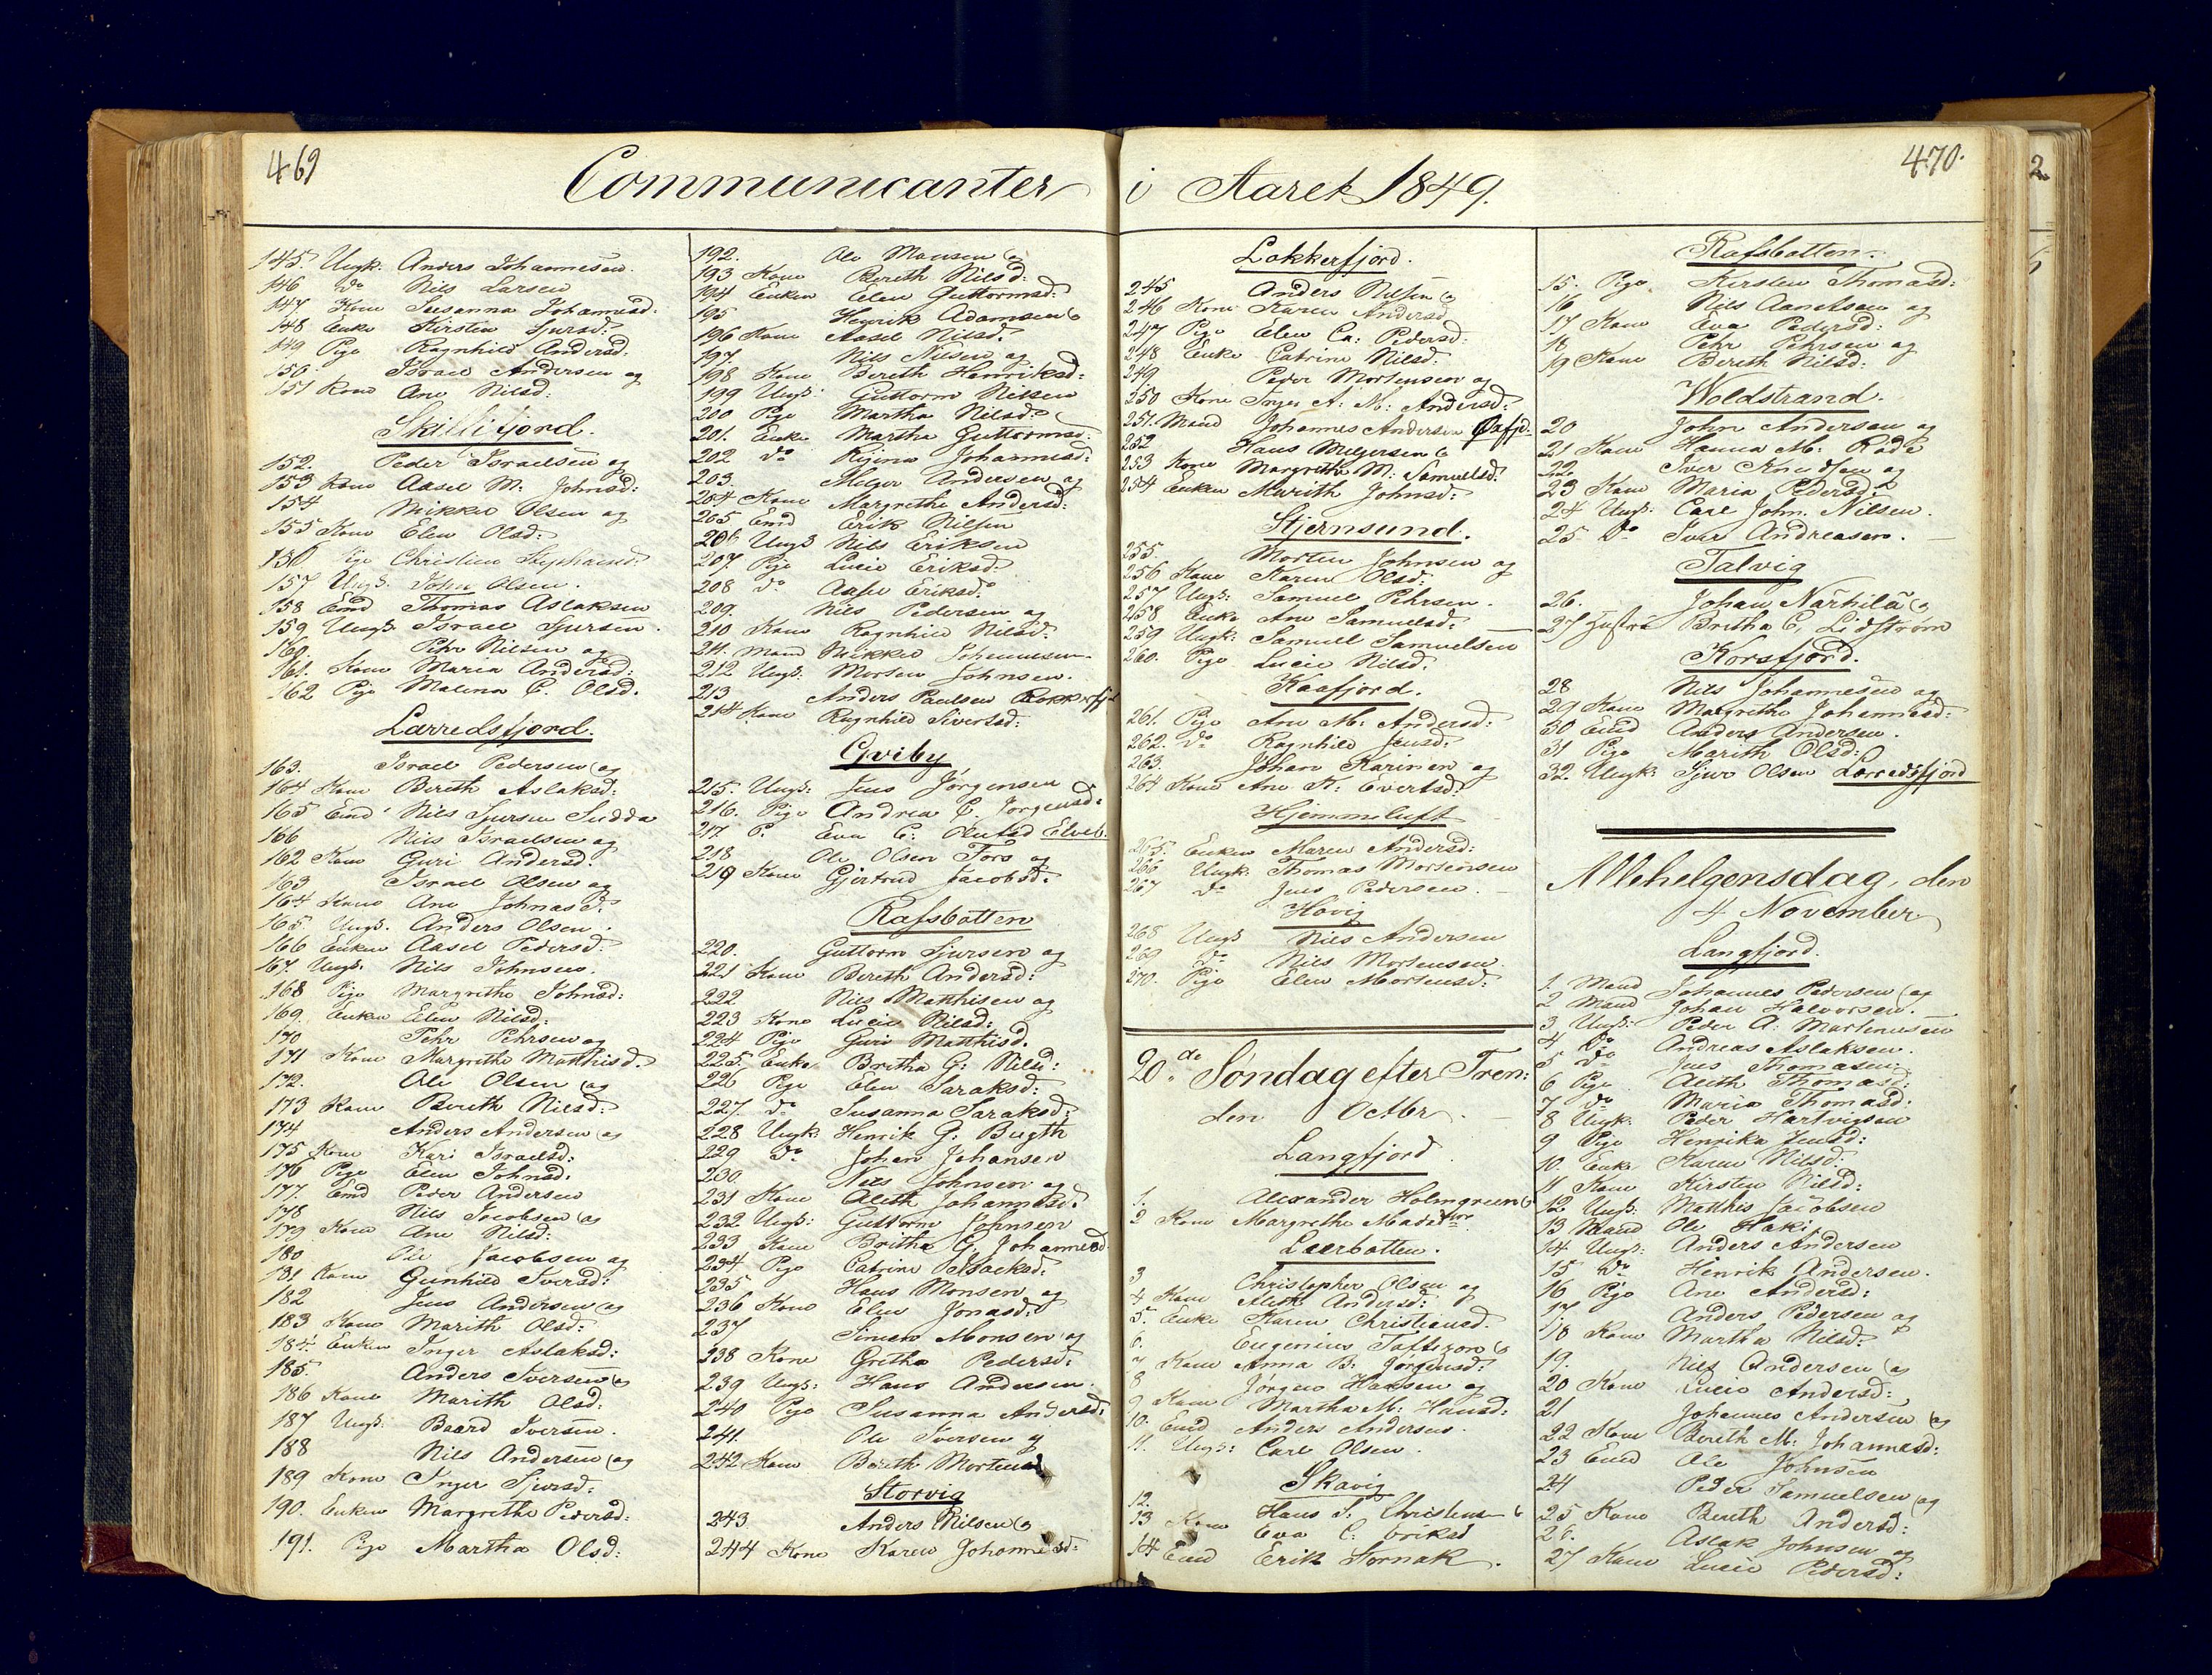 469
Communicanter
145 Ungk. Anders Johannesen.
146 do Nils Larsen
147 Kone Susanna Johannesd.
148 Enke Kirsten Sjursd:
149 Pige Ragnhild Andersd:
150. Israel Andersen og
151 Kone Ane Nilsd:
Skillifjord.
152. Peder Israelsen og
153 Kone Aasel M: Johnsd:
154 Mikkel Olsen og
155 Kone Elen Olsd:
156 Pige Christine Stephansd:
157 Ungk. John Olsen.
158 Emd Thomas Aslaksen
159 Ungk. Israel Sjursen.
160. Pehr Nilsen og
161. Kone Maria Andersd:
162 Pige Malena C. Olsd.
Larredsfjord.
163. Israel Pedersen og
164 Kone Bereth Aslaksd:
165 Emd Nils Sjursen Sudda
166 Nils Israelsen og
162 Kone Guri Andersd.
163 Israel Olsen og
164 Kone Ane Johnasd.
165. Ungk. Anders Olsen.
166 Enken Aasel Pedersd:
167. Ungk. Nils Johnsen.
168 Pige Margrethe Johnsd:
169. Enken Elen Nilsd:
170 Pehr Pehrsen og
171 Kone Margrethe Matthisd.
172. Ole Olsen og
173 Kone Bereth Nilsd:
174 Anders Andersen og
175 Kone Kari Israelsd:
176 Pige Elen Johnsd:
177. Emd Peder Andersen
178 Nils Jacobsen og
179 Kone Ane Nilsd:
180 Ole Jacobsen og
181 Kone Gunhild Iversd:
182 Jens Andersen og
183 Kone Marith Olsd:
184. Enken Inger Aslaksd:
185. Anders Iversen og
186 Kone Marith Olsd:
187 Ungk. Baard Iversen.
188 Nils Andersen og
189 Kone Inger Sjursd:
190. Enken Margrethe Pedersd:
191. Pige Martha Olsd:
192. Ole Monsen og
193 Kone Bereth Nilsd:
194 Enken Elen Guttormsd:
195 Henrik Adamsen og
196 Kone Aasel Nilsd.
197. Nils Nilsen og
198 Kone Bereth Henriksd:
199 Ungk. Guttorm Nilsen
200 Pige Martha Nilsd:
201. Enke Martha Guttormsd:
202 do Rijina Johannesd:
203. Melger Andersen og
204 Kone Margrethe Andersd:
205 Emd Erik Nilsen
206 Ungk Nils Eriksen
207. Pige Lucie Eriksd:
208 do Aasel Eriksd.
209. Nils Pedersen og
210 Kone Ragnhild Nilsd.
211. Mand Mikkel Johannesen.
212 Ungk. Morten Johnsen.
213 Anders Paulsen
214 Kone Ragnhild Siversd:
Qviby
215. Ungk. Jens Jörgensen
216. Pige Andrea C. Jörgensd:
217 P. Eva C: Olutsd Elveb.
218 Ole Olsen Fors og
219 Kone Gjertrud Jacobsd.
Rafsbotten
220. Guttorm Sjursen og
221 Kone Bereth Andersd:
222 Nils Matthisen og
223 Kone Lucie Nilsd:
224 Pige Guri Matthisd.
225. Enke Britha G: Nilsd:
226 Pige Elen Saraksd:
227. do Susanna Saraksd:
228 Ungk: Henrik G. Bugth
229 do Johan Johansen
230. Nils Johnsen og
231 Kone Aleth Johannesd:
232 Ungk: Guttorm Johnsen
233 Kone Britha G. Johannesd
234 Pige Catrine
235 Hans Monsen og
236 Kone Elen Jonasd:
237 Simen Monsen og
238 Kone Grethe Pedersd:
239 Ungk: Hans Andersen.
240 Pige Susanna Andersd:
241. Ole Iversen og
242 Kone Bereth Mortensd
Storvig
243 Anders Nilsen og
244 Kone Karen Johannesd:
470.
i Aaret 1849.
Lokkerfjord.
245 Anders Nilsen og
246 Kone Karen Andersd
247 Pige Elen Ca: Pedersd:
248 Enke Catrine Nilsd:
249 Peder Mortensen og
250 Kone Inger A: M: Andersd:
251. Mand Johannes Andersen Øxfjd.
252 Hans Melgersen og
253 Kone Margrethe M: Samuelsd:
254 Enken Marith Johnsd:
Stjernsund.
255. Morten Johnsen og
256 Kone Karen Olsd:
257 Ungk: Samuel Pehrsen.
258 Enke Ane Samuelsd:
259 Ungk: Samuel Samuelsen
260. Pige Lucie Nilsd.
Kaafjord.
261. Pige Ane M: Andersd:
262. do Ragnhild Jensd:
263. Johan Karinen og
264 Kone Ane K: Evertsd:
Hjemmeluft
265. Enken Maren Andersd:
266 Ungk: Thomas Mortensen
267 do Jens Pedersen.
Hovig
268 Ungk Nils Andersen
269 do Nils Mortensen.
270. Pige Elen Mortensd:
20de Søndag efter Tren:
den Octbr.
Langfjord
1. Alexander Holmgreen og
2 Kone Margrethe
Leerbotten.
3 Christopher Olsen og
4 Kone Aleth Andersd:
5. Enke Karen Christensd.
6. Eugenius og
7 Kone Anna B: Jörgensd:
8 Jörgen Hansen og
9 Kone Martha M: Hansd:
10. Emd Anders Andersen.
11. Ungk: Carl Olsen.
Skavig
12. Hans S. Christens og
13 Kone Eva C: Eriksd
14 Emd Erik Kornak.
Rafsbotten.
15. Pige Kirsten Thomasd:
16 Nils Aanetsen og
17 Kone Eva Pedersd:
18 Pehr Pehrsen og
19 Kone Bereth Nilsd:
Woldstrand.
20 John Andersen og
21 Kone Hanna M: Rode
22. Iver Knudsen og
23 Kone Maria Pedersd:
24 Ungk: Carl John. Nilsen.
25 do Iver Andreasen.
Talvig
26. Johan Närhilä og
27 Hustru Britha C, Lidström
Korsfjord.
28 Nils Johannesen og
29 Kone Margrethe Johannesd:
30 Emd Anders Andersen.
31 Pige Marith Olsd:
32. Ungk: Sjur Olsen Larredsfjord
Allehelgensdag, den
4 November
Langfjord.
1. Mand Johannes Pedersen og
2 Mand Johan Halvorsen.
3. Ungk: Peder A. Martinusen
4 do Andreas Aslaksen.
5 do Jens Thomasen.
6 Pige Aleth Thomasd:
7 do Maria Thomasd:
8 Ungk: Peder Hartvigsen
9 Pige Henrika Jensd:
10. Enke Karen Nilsd:
11 Kone Kirsten Nilsd:
12 Ungk: Matthis Jacobsen
13 Mand Ole Haki
14 Ungk: Anders Andersen
15 do Henrik Andersen.
16 Pige Ane Andersd:
17 Anders Pedersen og
18 Kone Martha Nilsd:
19. Nils Andersen og
20 Kone Lucie Andersd:
21 Johannes Andersen og
22 Kone Bereth M: Johannesd:
23 Emd Ole Johnsen
24 Peder Samuelsen og
25 Kone Bereth Andersd:
26. Aslak Johnsen og
27 Kone Lucie Pedersd:
2